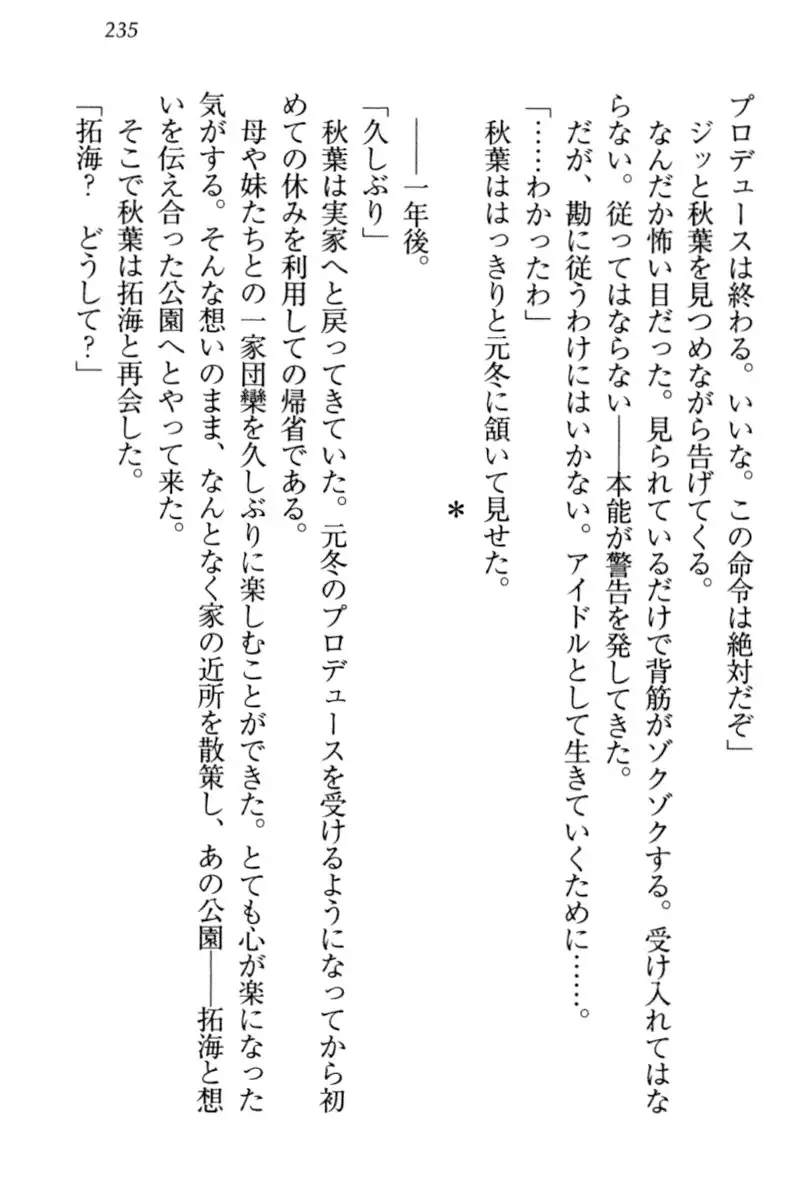 235
プロデュースは終わる。いいな。この命令は絶対だぞ」
　ジッと秋葉を見つめながら告げてくる。
　なんだか怖い目だった。見られているだけで背筋がゾクゾクする。受け入れてはな
らない。従ってはならない――本能が警告を発してきた。
　だが、勘に従うわけにはいかない。アイドルとして生きていくために……。
「……わかったわ」
　秋葉ははっきりと元冬に頷いて見せた。
＊
　――一年後。
「久しぶり」
　秋葉は実家へと戻ってきていた。元冬のプロデュースを受けるようになってから初
めての休みを利用しての帰省である。
　母や妹たちとの一家団欒を久しぶりに楽しむことができた。とても心が楽になった
気がする。そんな想いのまま、なんとなく家の近所を散策し、あの公園――拓海と想
いを伝え合った公園へとやって来た。
　そこで秋葉は拓海と再会した。
「拓海？　どうして？」